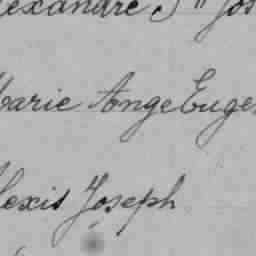 exandre J
arie Ange Euge
lexis Joseph